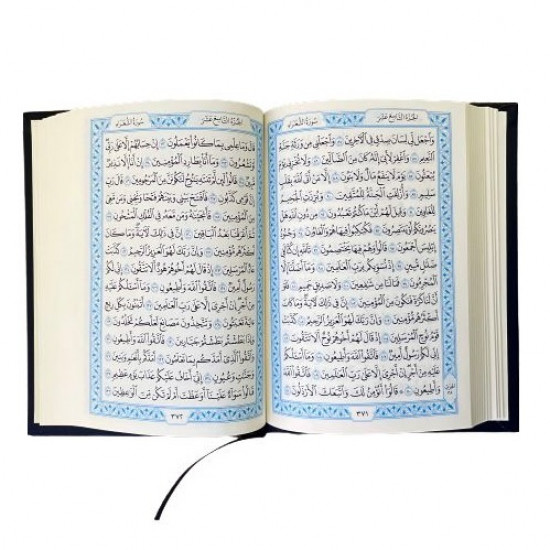 الجزء التاسع عشر سورة الشعراء
وَٱجْعَل لِّي لِسَانَ صِدْقٖ فِي ٱلْأٓخِرِينَ ٨٤ وَٱجْعَلْنِي مِن وَرَثَةِ جَنَّةِ
ٱلنَّعِيمِ ٨٥ وَٱغْفِرْ لِأَبِيٓ إِنَّهُۥ كَانَ مِنَ ٱلضَّآلِّينَ ٨٦ وَلَا تُخْزِنِي يَوْمَ
يُبْعَثُونَ ٨٧ يَوْمَ لَا يَنفَعُ مَالٞ وَلَا بَنُونَ ٨٨ إِلَّا مَنْ أَتَى ٱللَّهَ بِقَلْبٖ
سَلِيمٖ ٨٩ وَأُزْلِفَتِ ٱلْجَنَّةُ لِلْمُتَّقِينَ ٩٠ وَبُرِّزَتِ ٱلْجَحِيمُ
لِلْغَاوِينَ ٩١ وَقِيلَ لَهُمْ أَيْنَ مَا كُنتُمْ تَعْبُدُونَ ٩٢ مِن دُونِ ٱللَّهِ هَلْ
يَنصُرُونَكُمْ أَوْ يَنتَصِرُونَ ٩٣ فَكُبْكِبُواْ فِيهَا هُمْ وَٱلْغَاوُۥنَ ٩٤ وَجُنُودُ
إِبْلِيسَ أَجْمَعُونَ ٩٥ قَالُواْ وَهُمْ فِيهَا يَخْتَصِمُونَ ٩٦ تَٱللَّهِ إِن كُنَّا لَفِي
ضَلَٰلٖ مُّبِينٍ ٩٧ إِذْ نُسَوِّيكُم بِرَبِّ ٱلْعَٰلَمِينَ ٩٨ وَمَآ أَضَلَّنَآ إِلَّا
ٱلْمُجْرِمُونَ ٩٩ فَمَا لَنَا مِن شَٰفِعِينَ ١٠٠ وَلَا صَدِيقٍ حَمِيمٖ ١٠١ فَلَوْ
أَنَّ لَنَا كَرَّةٗ فَنَكُونَ مِنَ ٱلْمُؤْمِنِينَ ١٠٢ إِنَّ فِي ذَٰلِكَ لَأٓيَةٗۖ وَمَا كَانَ
أَكْثَرُهُم مُّؤْمِنِينَ ١٠٣ وَإِنَّ رَبَّكَ لَهُوَ ٱلْعَزِيزُ ٱلرَّحِيمُ ١٠٤ كَذَّبَتْ
قَوْمُ نُوحٍ ٱلْمُرْسَلِينَ ١٠٥ إِذْ قَالَ لَهُمْ أَخُوهُمْ نُوحٌ أَلَا تَتَّقُونَ ١٠٦
إِنِّي لَكُمْ رَسُولٌ أَمِينٞ ١٠٧ فَٱتَّقُواْ ٱللَّهَ وَأَطِيعُونِ ١٠٨ وَمَآ أَسْـَٔلُكُمْ
عَلَيْهِ مِنْ أَجْرٍۖ إِنْ أَجْرِيَ إِلَّا عَلَىٰ رَبِّ ٱلْعَٰلَمِينَ ١٠٩ فَٱتَّقُواْ ٱللَّهَ
وَأَطِيعُونِ ١١٠ قَالُوٓاْ أَنُؤْمِنُ لَكَ وَٱتَّبَعَكَ ٱلْأَرْذَلُونَ ١١١
٣٧١
الجزء التاسع عشر سورة الشعراء
قَالَ وَمَا عِلْمِي بِمَا كَانُواْ يَعْمَلُونَ ١١٢ إِنْ حِسَابُهُمْ إِلَّا عَلَىٰ رَبِّيۖ لَوْ
تَشْعُرُونَ ١١٣ وَمَآ أَنَا۠ بِطَارِدِ ٱلْمُؤْمِنِينَ ١١٤ إِنْ أَنَا۠ إِلَّا نَذِيرٞ
مُّبِينٞ ١١٥ قَالُواْ لَئِن لَّمْ تَنتَهِ يَٰنُوحُ لَتَكُونَنَّ مِنَ ٱلْمَرْجُومِينَ ١١٦ قَالَ رَبِّ
إِنَّ قَوْمِي كَذَّبُونِ ١١٧ فَٱفْتَحْ بَيْنِي وَبَيْنَهُمْ فَتْحٗا وَنَجِّنِي وَمَن مَّعِيَ
مِنَ ٱلْمُؤْمِنِينَ ١١٨ فَأَنجَيْنَٰهُ وَمَن مَّعَهُۥ فِي ٱلْفُلْكِ ٱلْمَشْحُونِ ١١٩
ثُمَّ أَغْرَقْنَا بَعْدُ ٱلْبَاقِينَ ١٢٠ إِنَّ فِي ذَٰلِكَ لَأٓيَةٗۖ وَمَا كَانَ
أَكْثَرُهُم مُّؤْمِنِينَ ١٢١ وَإِنَّ رَبَّكَ لَهُوَ ٱلْعَزِيزُ ٱلرَّحِيمُ ١٢٢ كَذَّبَتْ
عَادٌ ٱلْمُرْسَلِينَ ١٢٣ إِذْ قَالَ لَهُمْ أَخُوهُمْ هُودٌ أَلَا تَتَّقُونَ ١٢٤ إِنِّي لَكُمْ
رَسُولٌ أَمِينٞ ١٢٥ فَٱتَّقُواْ ٱللَّهَ وَأَطِيعُونِ ١٢٦ وَمَآ أَسْـَٔلُكُمْ عَلَيْهِ
مِنْ أَجْرٍۖ إِنْ أَجْرِيَ إِلَّا عَلَىٰ رَبِّ ٱلْعَٰلَمِينَ ١٢٧ أَتَبْنُونَ بِكُلِّ رِيعٍ
ءَايَةٗ تَعْبَثُونَ ١٢٨ وَتَتَّخِذُونَ مَصَانِعَ لَعَلَّكُمْ تَخْلُدُونَ ١٢٩
وَإِذَا بَطَشْتُم بَطَشْتُمْ جَبَّارِينَ ١٣٠ فَٱتَّقُواْ ٱللَّهَ وَأَطِيعُونِ ١٣١
وَٱتَّقُواْ ٱلَّذِيٓ أَمَدَّكُم بِمَا تَعْلَمُونَ ١٣٢ أَمَدَّكُم بِأَنْعَٰمٖ وَبَنِينَ ١٣٣
وَجَنَّٰتٖ وَعُيُونٍ ١٣٤ إِنِّيٓ أَخَافُ عَلَيْكُمْ عَذَابَ يَوْمٍ عَظِيمٖ ١٣٥
قَالُواْ سَوَآءٌ عَلَيْنَآ أَوَعَظْتَ أَمْ لَمْ تَكُن مِّنَ ٱلْوَٰعِظِينَ ١٣٦
٣٧٢